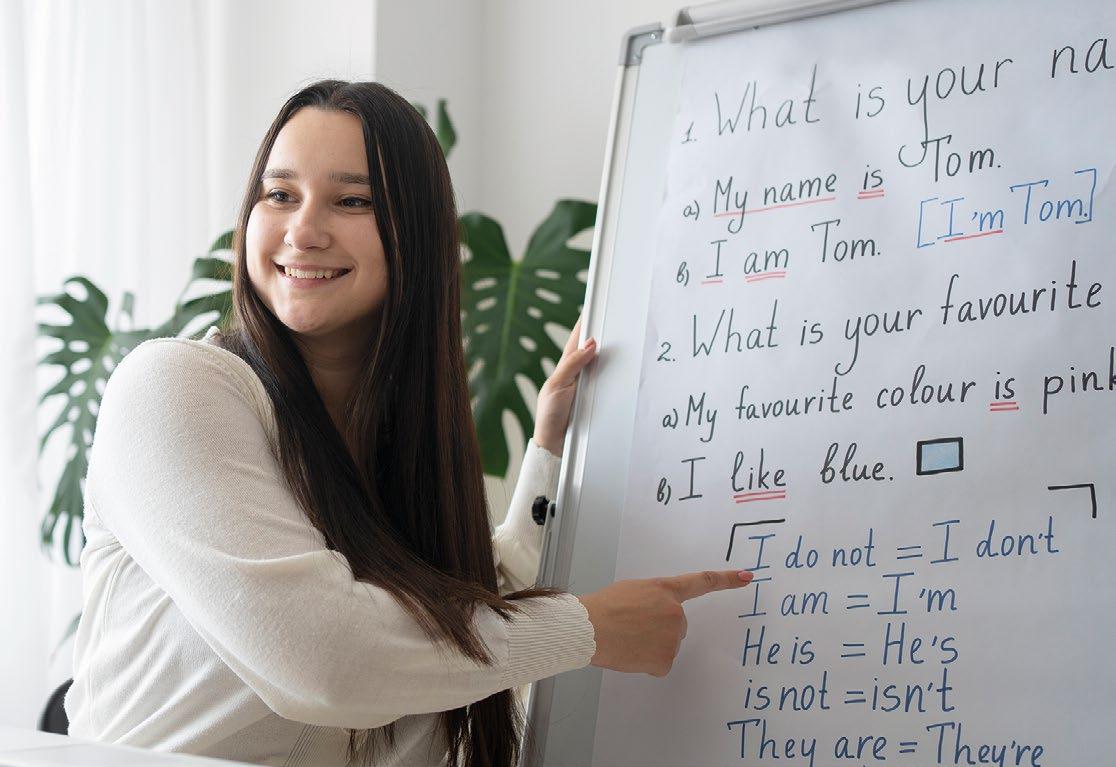 1. What is your na
a) My name is Tom.
b) I am Tom. [I'm Tom.]
2. What is your favourite
a) My favourite colour is pink
b) I like blue.
I do not = I don't
I am = I'm
He is = He's
is not = isn't
They are = They're